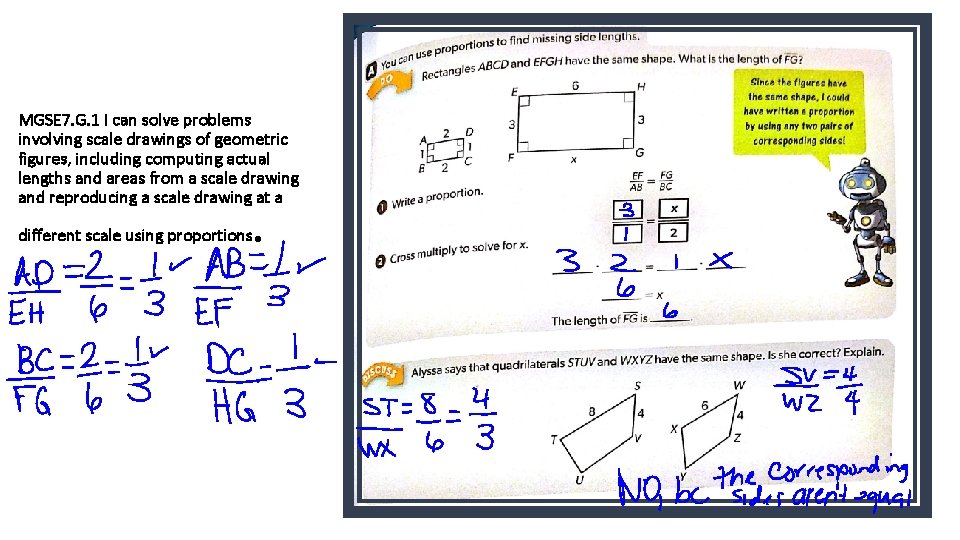 MGSE7.G.1 I can solve problems
involving scale drawings of geometric
figures, including computing actual
lengths and areas from a scale drawing
and reproducing a scale drawing at a
different scale using proportions.
AD/EH = 2/6 = 1/3 ✓ AB/EF = 1/3 ✓
BC/FG = 2/6 = 1/3 ✓ DC/HG - 1/3 -
A You can use proportions to find missing side lengths.
DO
Rectangles ABCD and EFGH have the same shape. What is the length of FG?
E 6 H
3 3
F x G
A 2 D
1 1
B 2 C
Since the figures have
the same shape, I could
have written a proportion
by using any two pairs of
corresponding sides!
1 Write a proportion.
EF/AB = FG/BC
3/1 = x/2
2 Cross multiply to solve for x.
3 · 2 = 1 · x
6 = x
The length of FG is 6.
DISCUSS
Alyssa says that quadrilaterals STUV and WXYZ have the same shape. Is she correct? Explain.
ST/WX = 8/6 = 4/3
S
8 4
T V
U
W
6 4
X Z
Y
SV/WZ = 4/4
NO, bc the corresponding
sides aren't equal